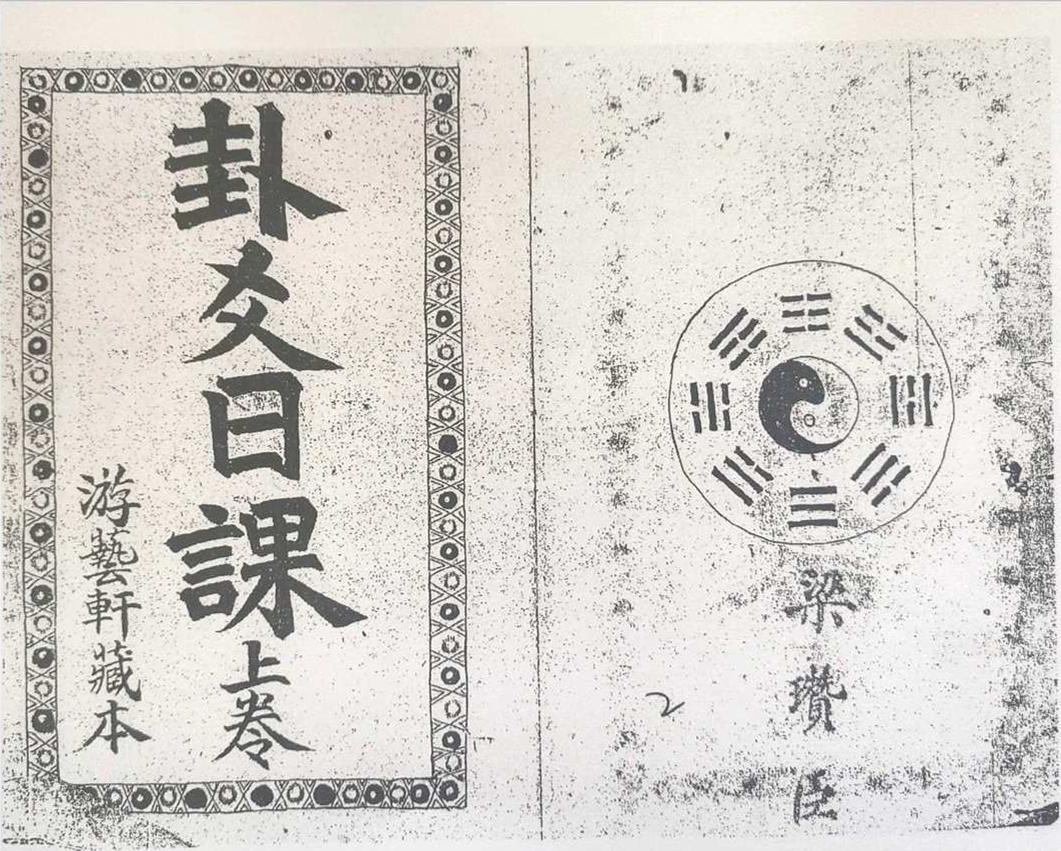 梁瓚臣
卦爻日課
上卷
游藝軒藏本